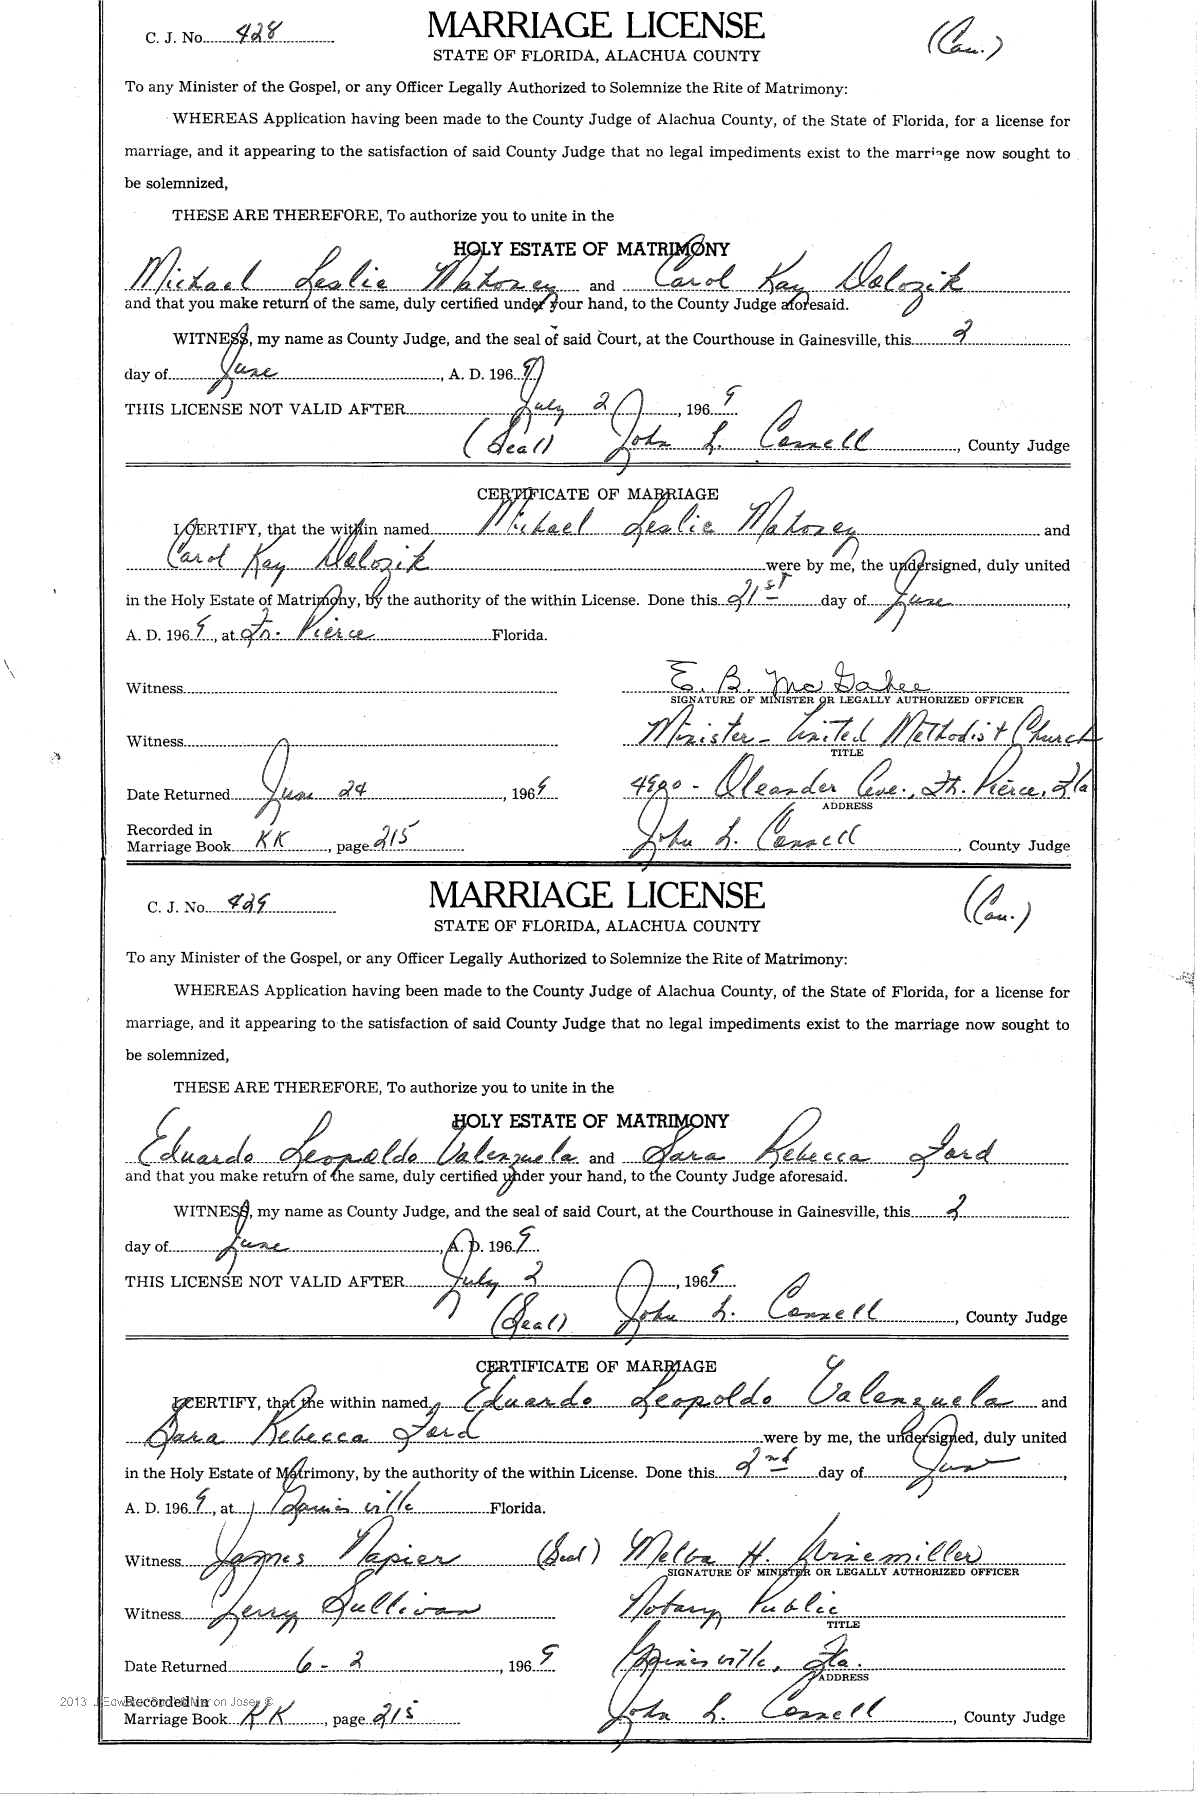 C. J. No. 428
MARRIAGE LICENSE
(Cau.)
STATE OF FLORIDA, ALACHUA COUNTY
To any Minister of the Gospel, or any Officer Legally Authorized to Solemnize the Rite of Matrimony:
WHEREAS Application having been made to the County Judge of Alachua County, of the State of Florida, for a license for
marriage, and it appearing to the satisfaction of said County Judge that no legal impediments exist to the marriage now sought to
be solemnized,
THESE ARE THEREFORE, To authorize you to unite in the
HOLY ESTATE OF MATRIMONY
Michael Leslie Mahoney and Carol Kay Dolozik
and that you make return of the same, duly certified under your hand, to the County Judge aforesaid.
WITNESS, my name as County Judge, and the seal of said Court, at the Courthouse in Gainesville, this 2
day of June, A. D. 1969
THIS LICENSE NOT VALID AFTER July 2, 1969
(Seal) John L. Connell, County Judge
CERTIFICATE OF MARRIAGE
I CERTIFY, that the within named Michael Leslie Mahoney and
Carol Kay Dolozik were by me, the undersigned, duly united
in the Holy Estate of Matrimony, by the authority of the within License. Done this 21st day of June,
A. D. 1969, at Ft. Pierce Florida.
Witness E. B. McGahee
SIGNATURE OF MINISTER OR LEGALLY AUTHORIZED OFFICER
Witness Minister - United Methodist Church
TITLE
Date Returned June 24, 1969 4900 - Oleander Ave., Ft. Pierce, Fla
ADDRESS
Recorded in
Marriage Book KK, page 215 John L. Connell, County Judge
C. J. No. 429
MARRIAGE LICENSE
(Cau.)
STATE OF FLORIDA, ALACHUA COUNTY
To any Minister of the Gospel, or any Officer Legally Authorized to Solemnize the Rite of Matrimony:
WHEREAS Application having been made to the County Judge of Alachua County, of the State of Florida, for a license for
marriage, and it appearing to the satisfaction of said County Judge that no legal impediments exist to the marriage now sought to
be solemnized,
THESE ARE THEREFORE, To authorize you to unite in the
HOLY ESTATE OF MATRIMONY
Eduardo Leopoldo Valenzuela and Sara Rebecca Ford
and that you make return of the same, duly certified under your hand, to the County Judge aforesaid.
WITNESS, my name as County Judge, and the seal of said Court, at the Courthouse in Gainesville, this 2
day of June, A. D. 1969
THIS LICENSE NOT VALID AFTER July 2, 1969
(Seal) John L. Connell, County Judge
CERTIFICATE OF MARRIAGE
I CERTIFY, that the within named Eduardo Leopoldo Valenzuela and
Sara Rebecca Ford were by me, the undersigned, duly united
in the Holy Estate of Matrimony, by the authority of the within License. Done this 2nd day of June,
A. D. 1969, at Gainesville Florida.
Witness James Napier (Seal) Melba H. Winemiller
SIGNATURE OF MINISTER OR LEGALLY AUTHORIZED OFFICER
Witness Jerry Sullivan Notary Public
TITLE
Date Returned 6-2, 1969 Gainesville, Fla.
ADDRESS
Recorded in
Marriage Book KK, page 215 John L. Connell, County Judge